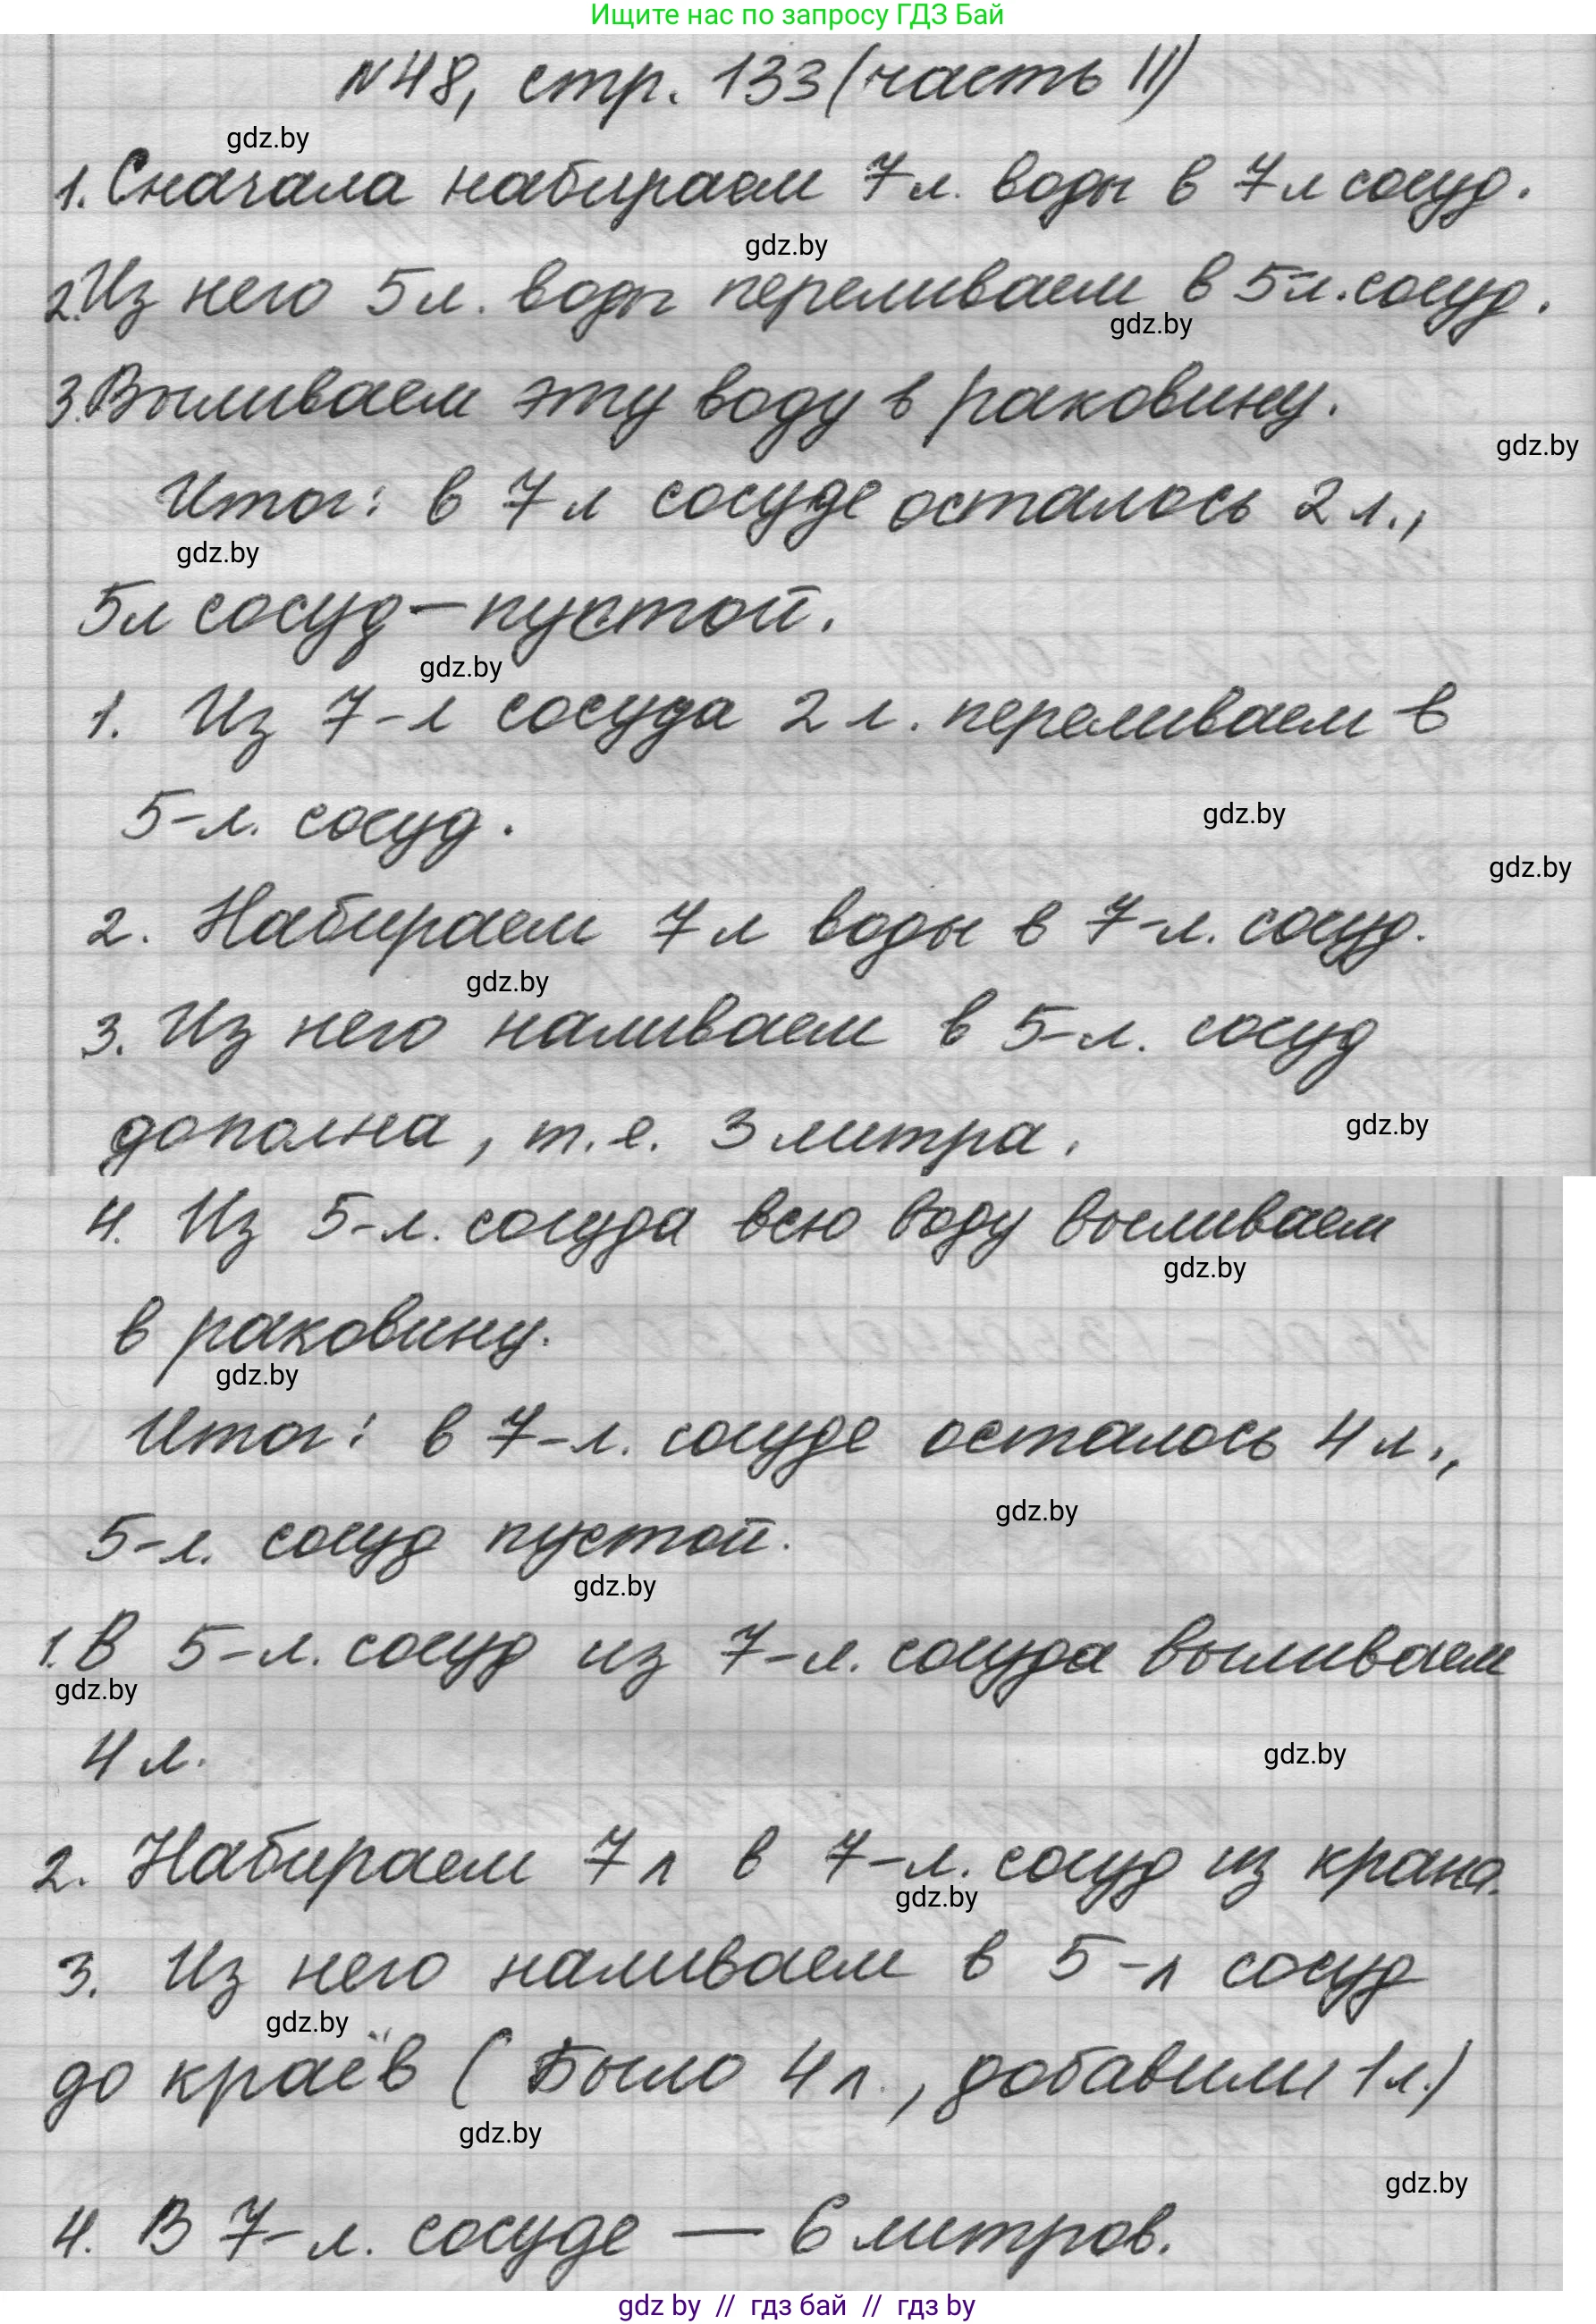 Ищите нас по запросу ГДЗ Бай
№48, стр. 133 (часть II)
gdz.by
1. Сначала набираем 7 л. воды в 7 л сосуд.
gdz.by
2. Из него 5 л. воды переливаем в 5-л. сосуд.
gdz.by
3. Выливаем эту воду в раковину.
gdz.by
Итог: в 7 л сосуде осталось 2 л.,
gdz.by
5л сосуд — пустой.
gdz.by
1. Из 7-л сосуда 2 л. переливаем в
5-л. сосуд.
gdz.by
gdz.by
2. Набираем 7 л воды в 7-л. сосуд.
gdz.by
3. Из него наливаем в 5-л. сосуд
дополна, т.е. 3 литра.
gdz.by
4. Из 5-л. сосуда всю воду выливаем
gdz.by
в раковину.
gdz.by
Итог: в 7-л. сосуде осталось 4 л.,
gdz.by
5-л. сосуд пустой.
gdz.by
1. В 5-л. сосуд из 7-л. сосуда выливаем
gdz.by
4 л.
gdz.by
2. Набираем 7 л в 7-л. сосуд из крана.
gdz.by
3. Из него наливаем в 5-л сосуд
gdz.by
до краёв (Было 4 л., добавили 1 л.)
gdz.by
gdz.by
4. В 7-л. сосуде — 6 литров.
gdz by // гдз бай // гдз by